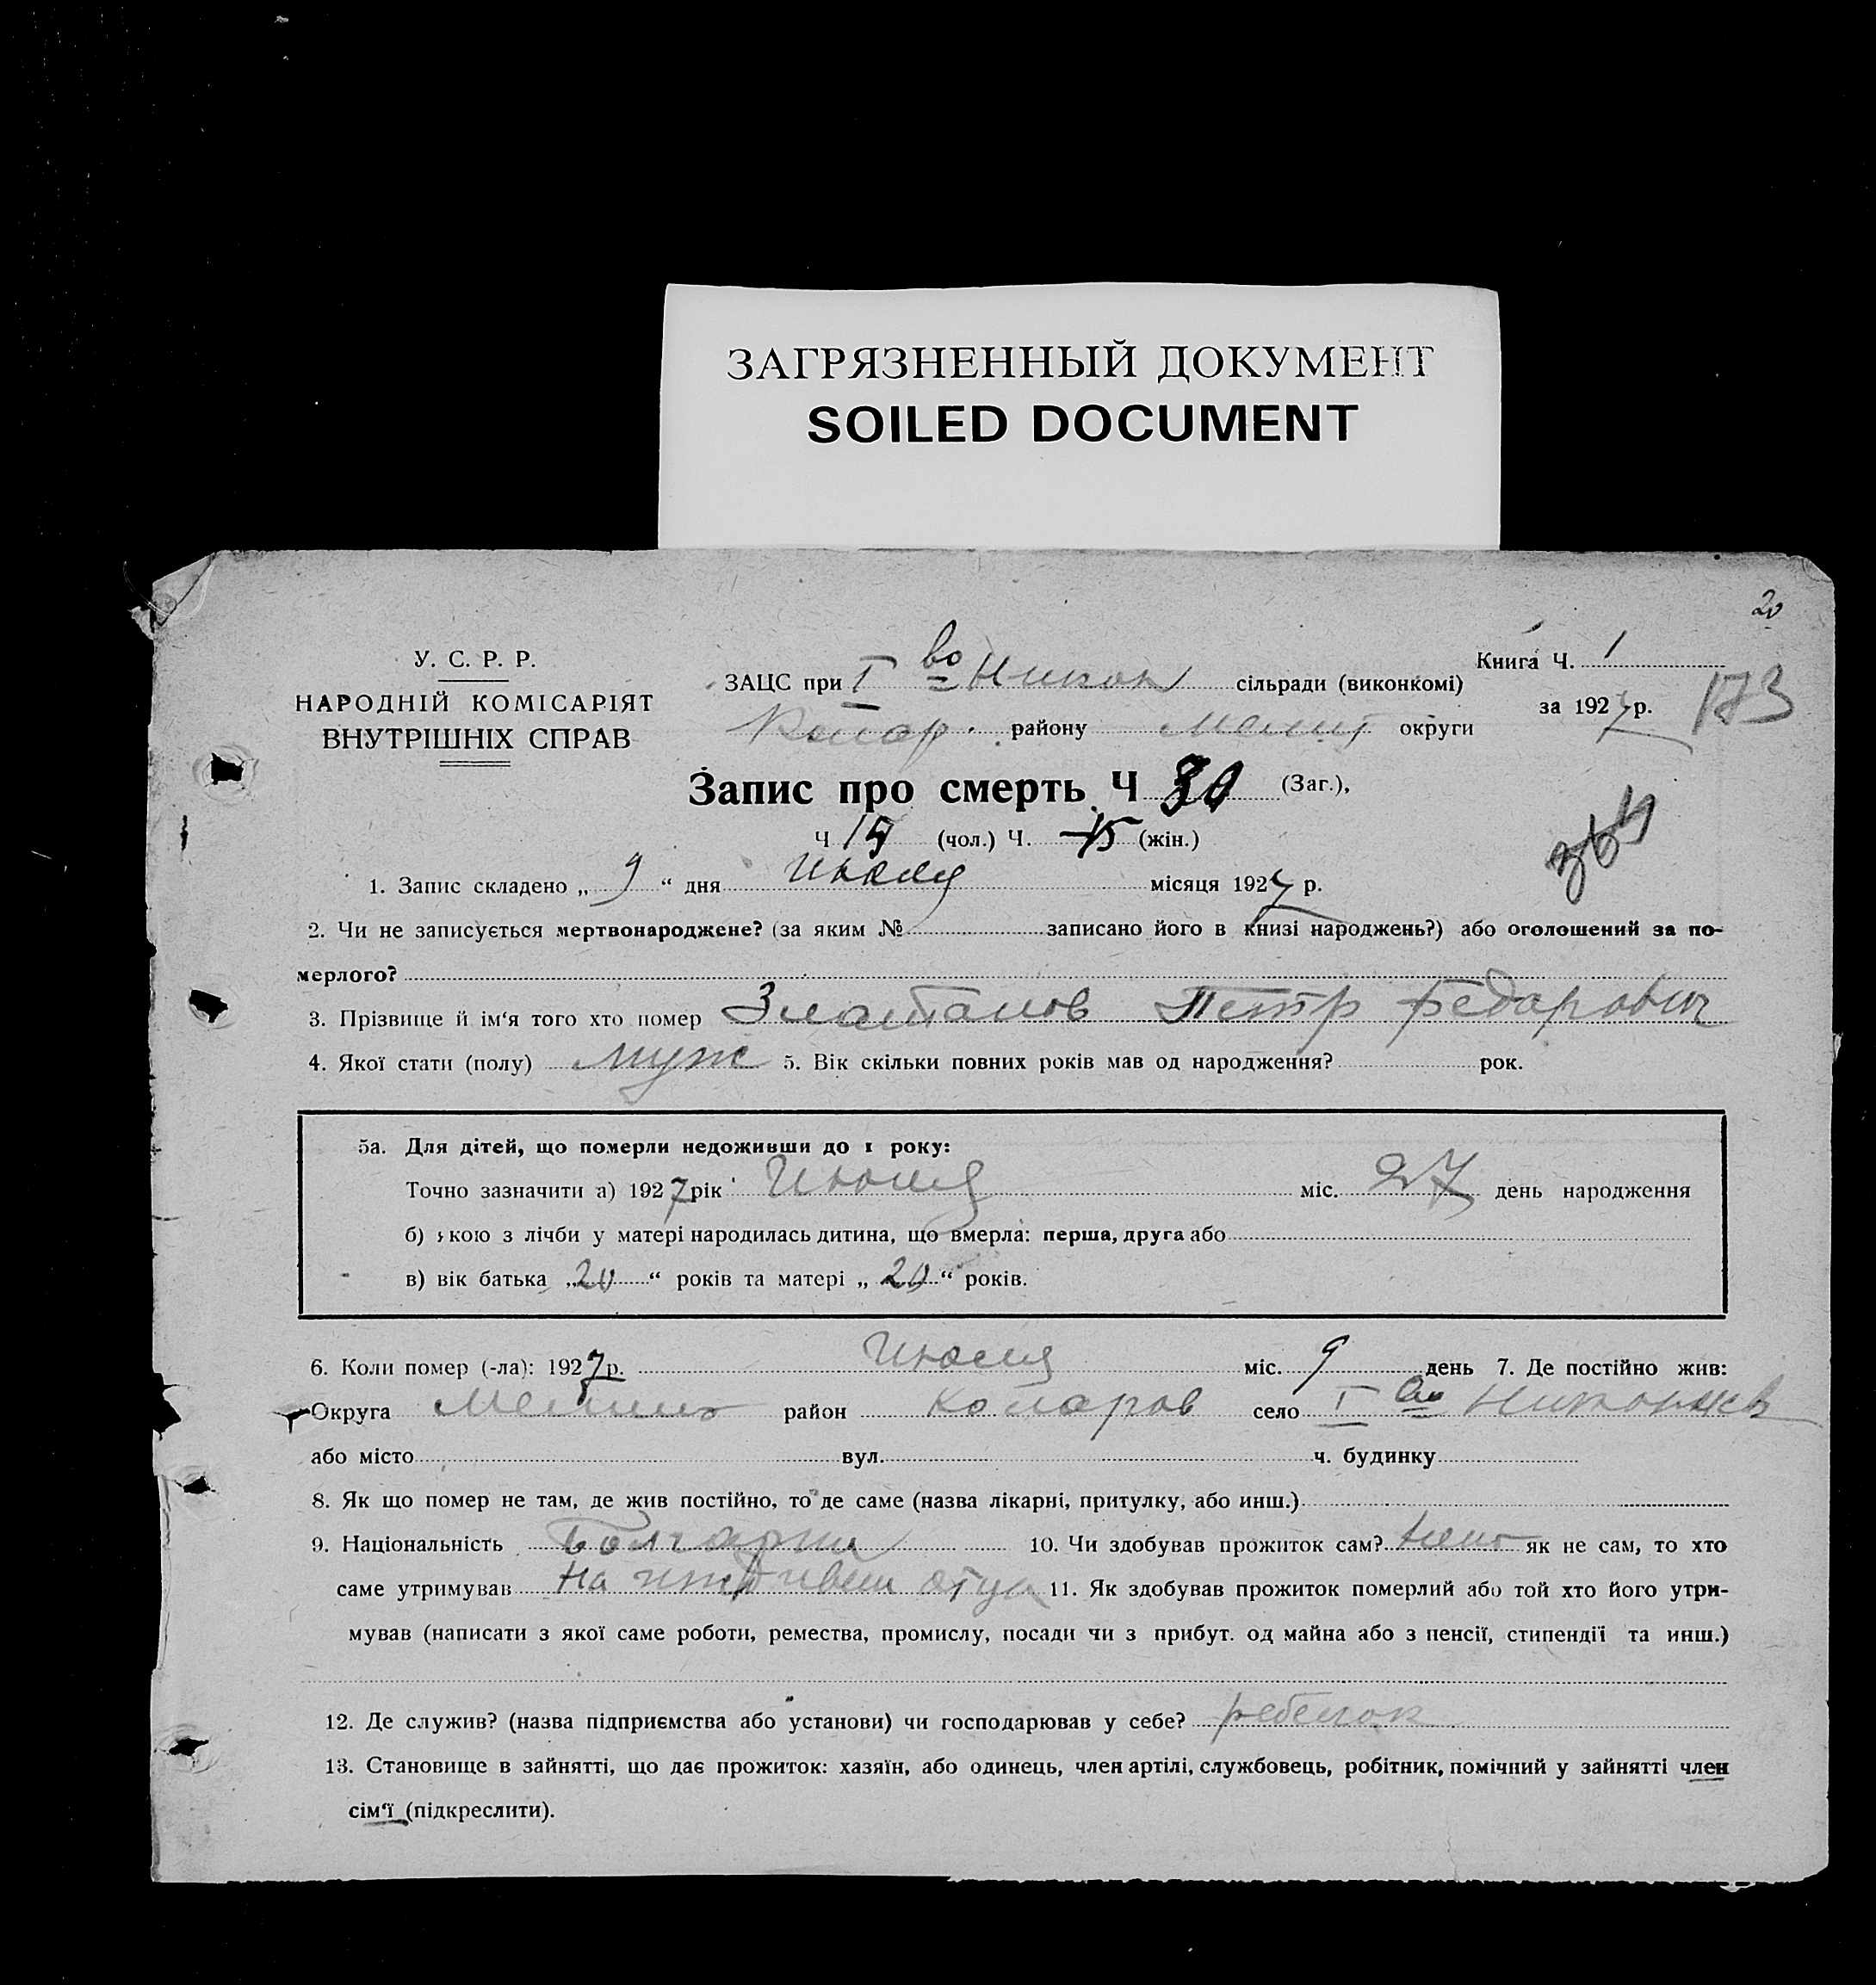 ЗАГРЯЗНЕННЫЙ ДОКУМЕНТ
SOILED DOCUMENT
20
У. С. Р. Р.
НАРОДНІЙ КОМІСАРІЯТ
ВНУТРІШНІХ СПРАВ
ЗАЦС при I во Никол сільради (виконкомі)
Колар. району Мелит округи
Книга Ч. 1
за 1927 р.
173
Запис про смерть Ч 30 (Заг.),
Ч 15 (чол.) Ч. 15 (жін.)
1. Запис складено „ 9 “ дня Июля місяця 1927 р.
2. Чи не записується мертвонароджене? (за яким № записано його в книзі народжень?) або оголошений за по-
мерлого?
3. Прізвище й ім‘я того хто помер Златанов Петр Федорович
4. Якої стати (полу) муж 5. Вік скільки повних років мав од народження? рок.
5а. Для дітей, що померли недоживши до 1 року:
Точно зазначити а) 1927 рік Июня міс. 27 день народження
б) якою з лічби у матері народилась дитина, що вмерла: перша, друга або
в) вік батька „20“ років та матері „20“ років.
6. Коли помер (-ла): 1927 р. Июля міс. 9 день 7. Де постійно жив:
Округа Мелит район Коларов село I во Николаев
або місто вул. ч. будинку
8. Як що помер не там, де жив постійно, то де саме (назва лікарні, притулку, або инш.)
9. Національність Болгарин 10. Чи здобував прожиток сам? нет як не сам, то хто
саме утримував На иждивен отца 11. Як здобував прожиток померлий або той хто його утри-
мував (написати з якої саме роботи, ремества, промислу, посади чи з прибут. од майна або з пенсії, стипендії та инш.)
12. Де служив? (назва підприємства або установи) чи господарював у себе? ребенок
13. Становище в зайнятті, що дає прожиток: хазяїн, або одинець, член артілі, службовець, робітник, помічний у зайнятті член
сім‘ї (підкреслити).